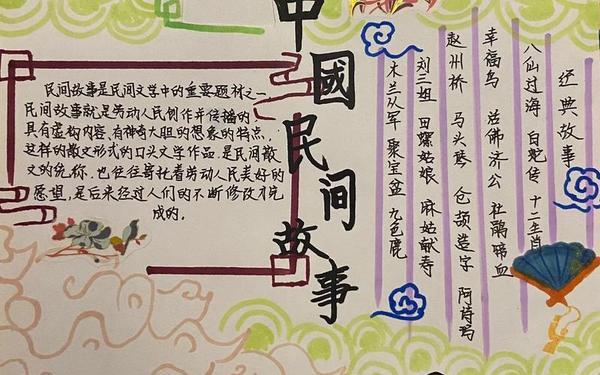 中國民间故事
民间故事是民间文学中的重要题材之一
民间故事就是劳动人民创作并传播的、
具有虚构内容,有神奇大胆的想象的特点,
这样的散文形式的口头文学作品.是民间散
文的统称.也往往寄托着劳动人民美好的
愿望,是后来经过人们的不断修改才完
成的。
经典故事
八仙过海 白蛇传 十二生肖
幸福鸟 活佛济公 杜鹃啼血
赵州桥 马头琴 仓颉造字 阿诗玛
刘三姐 田螺姑娘 麻姑献寿
木兰从军 聚宝盆 九色鹿